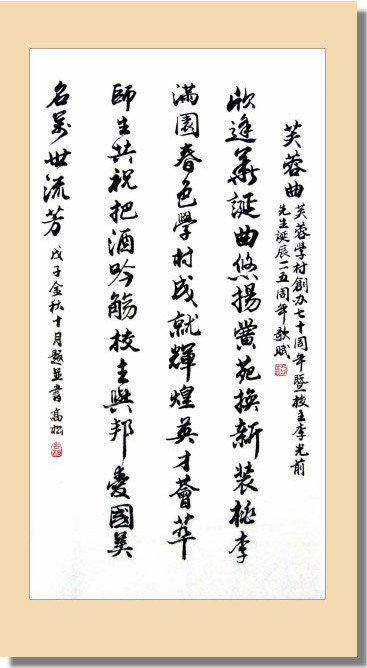 芙蓉曲
芙蓉學村創办七十周年暨校主李光前
先生誕辰一一五周年歌賦
欣逢華誕曲悠揚黌苑換新裝桃李
滿園春色學村成就輝煌英才薈萃
師生共祝把酒吟觴校主興邦愛國美
名萬世流芳
戊子金秋十月題並書高松